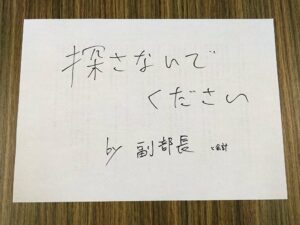 探さないで
ください
by 副部長 と会計